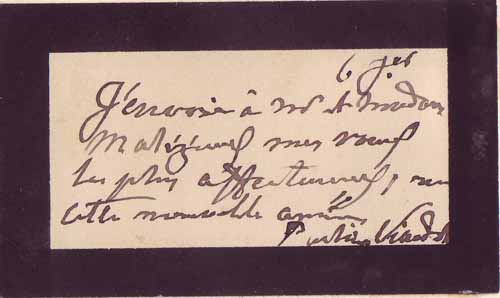 6 jer
J'envoie à Mr et Madame
mes vœux
les plus affectueux, en
cette nouvelle année
Pauline Viardot